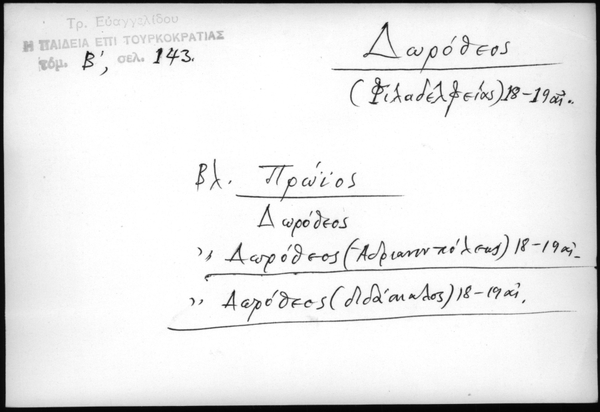 Τρ. Εὐαγγελίδου
Η ΠΑΙΔΕΙΑ ΕΠΙ ΤΟΥΡΚΟΚΡΑΤΙΑΣ
τόμ. Β', σελ. 143.
Δωρόθεος
(Φιλαδελφείας) 18-19 αἰ.
Βλ. Πρώϊος
Δωρόθεος
" Δωρόθεος (Ἀδριανουπόλεως) 18-19 αἰ.
" Δωρόθεος (διδάσκαλος) 18-19 αἰ.